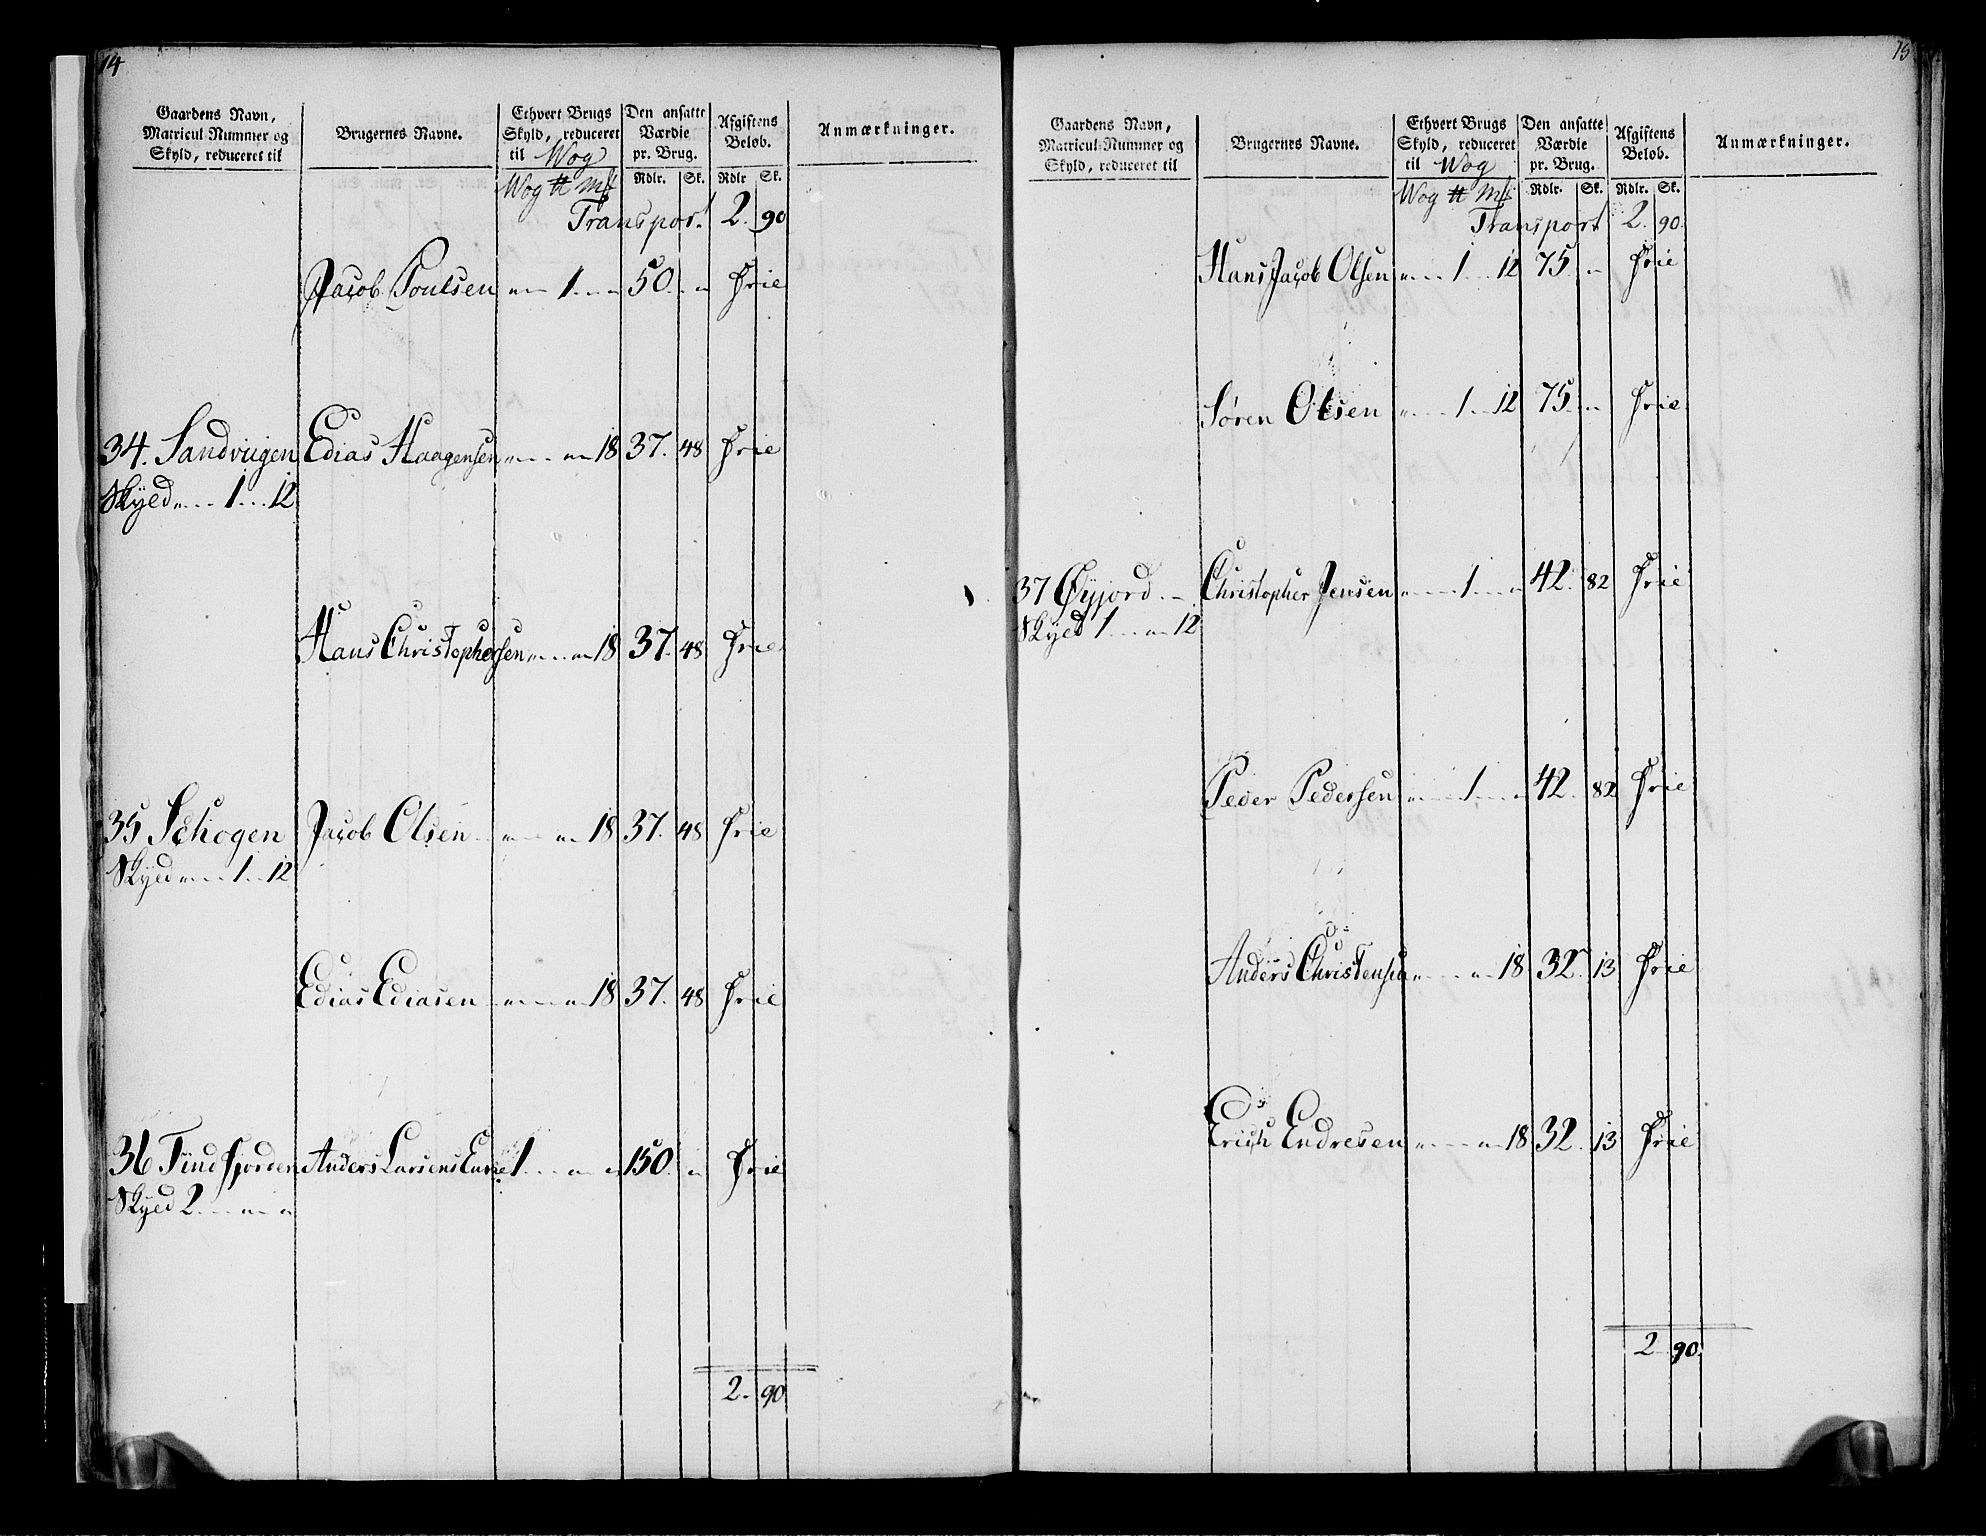 14
Gaardens Navn, Matricul-Nummer og Skyld, reduceret til | Brugernes Navne. | Ethvert Brugs Skyld, reduceret til Wog | Den ansatte Værdie pr. Brug. | Afgiftens Beløb. | Anmærkninger.
Wog ℔ Mk | Rdlr. | Sk. | Rdlr | Sk.
Transport 2. 90
Jacob Poulsen „ 1 „ 50 „ Frie
34. Sandviigen Edias Haagensen „ „ 18 37. 48 Frie
Skyld „ 1 12
Hans Christophersen „ „ 18 37. 48 Frie
35 Schogen Jacob Olsen „ „ 18 37. 48 Frie
Skyld „ 1 12
Edias Ediasen „ „ 18 37. 48 Frie
36 Tindfjorden Anders Larsens Enke 1 „ „ 150 „ Frie
Skyld 2 „ „
2. 90
15
Gaardens Navn, Matricul-Nummer og Skyld, reduceret til | Brugernes Navne. | Ethvert Brugs Skyld, reduceret til Wog | Den ansatte Værdie pr. Brug. | Afgiftens Beløb. | Anmærkninger.
Wog ℔ Mk | Rdlr. | Sk. | Rdlr. | Sk.
Transport 2. 90.
Hans Jacob Olsen „ 1 12 75 „ Frie
Søren Olsen „ 1 12 75 „ Frie
37 Øyjord Christopher Jensen „ 1 „ 42. 82 Frie
Skyld 1 „ 12
Peder Pedersen „ 1 „ 42. 82 Frie
Anders Christensen „ „ 18 32. 13 Frie
Erich Endresen „ „ 18 32. 13 Frie
2 90.